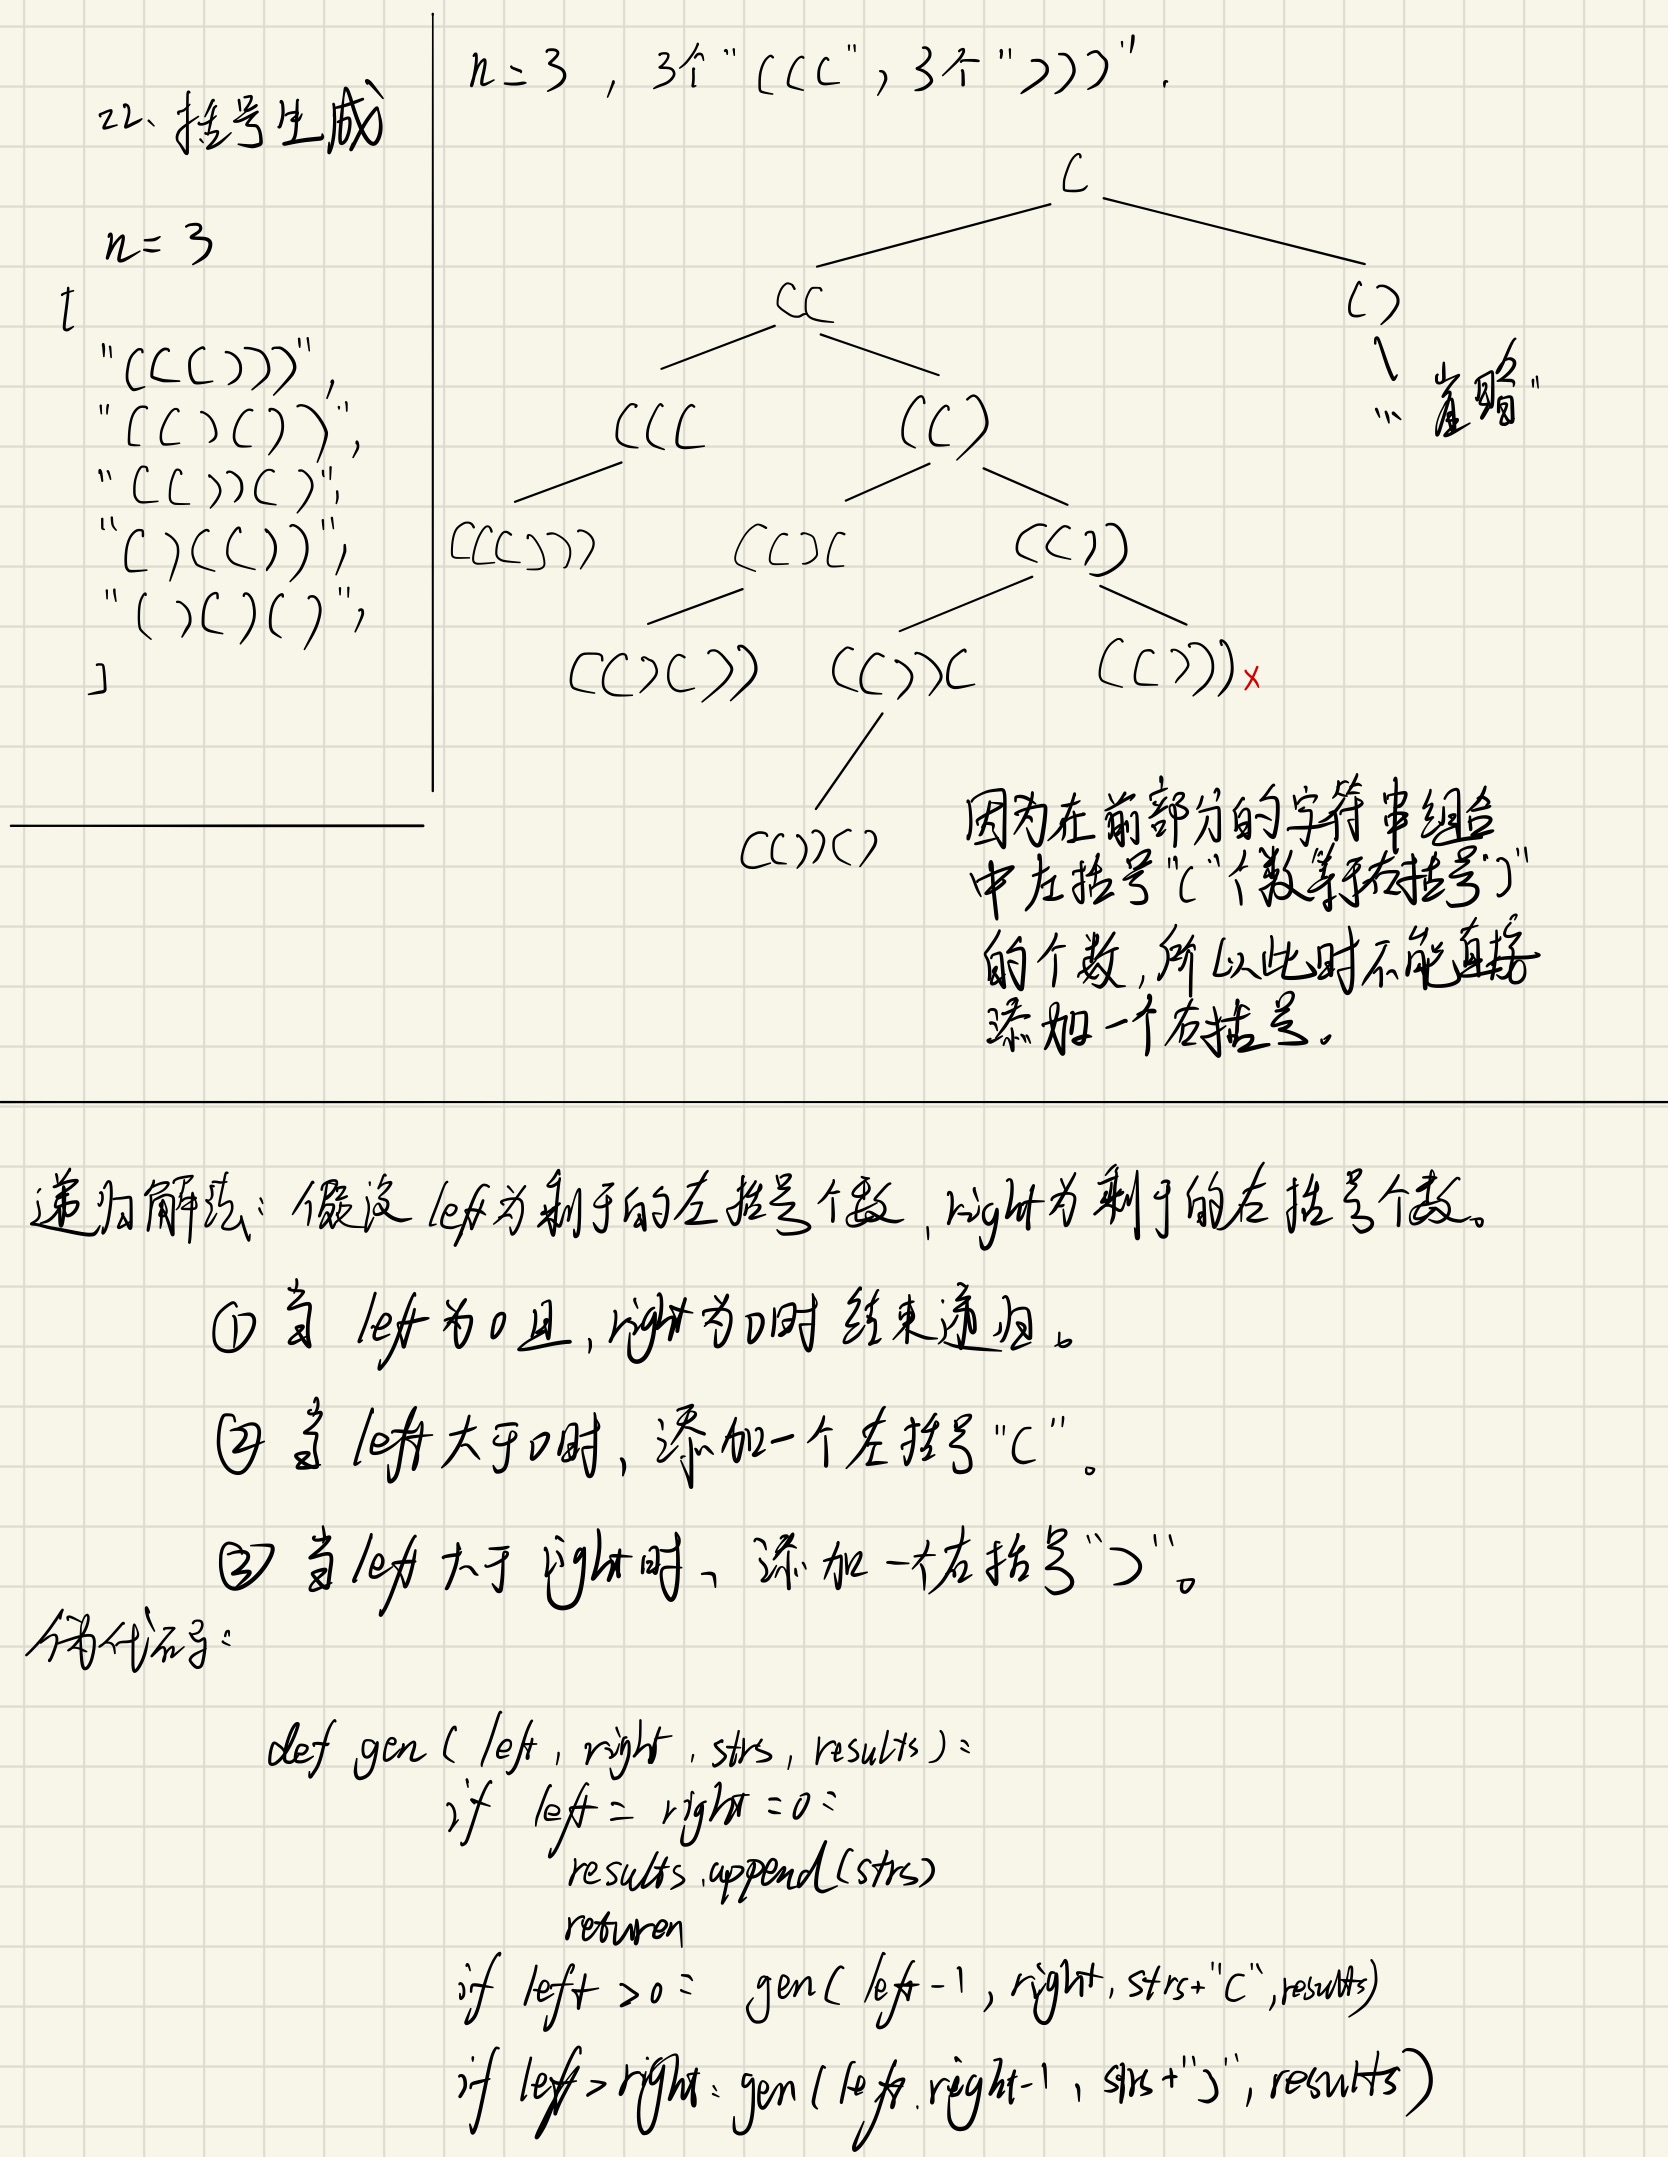 22、括号生成
n=3
[
"((()))",
"(()())",
"(())()",
"()(())",
"()()()",
]
n=3，3个"(((", 3个")))".
(
((
()
(((
(()
"… 省略"
((()))
(()(
(())
(()())
(())(
(()))x
(())()
因为在前部分的字符串组合
中左括号"("个数等于右括号")"
的个数,所以此时不能直接
添加一个右括号。
递归解法：假设left为剩于的左括号个数，right为剩于的右括号个数。
① 当left为0且，right为0时结束递归。
② 当left大于0时，添加一个左括号"("。
③ 当left大于right时、添加一个右括号")"。
伪代码：
def gen(left, right, strs, results):
if left = right = 0:
results.append(strs)
returen
if left > 0: gen(left-1, right, strs+"(", results)
if left > right: gen(left, right-1, strs+")", results)